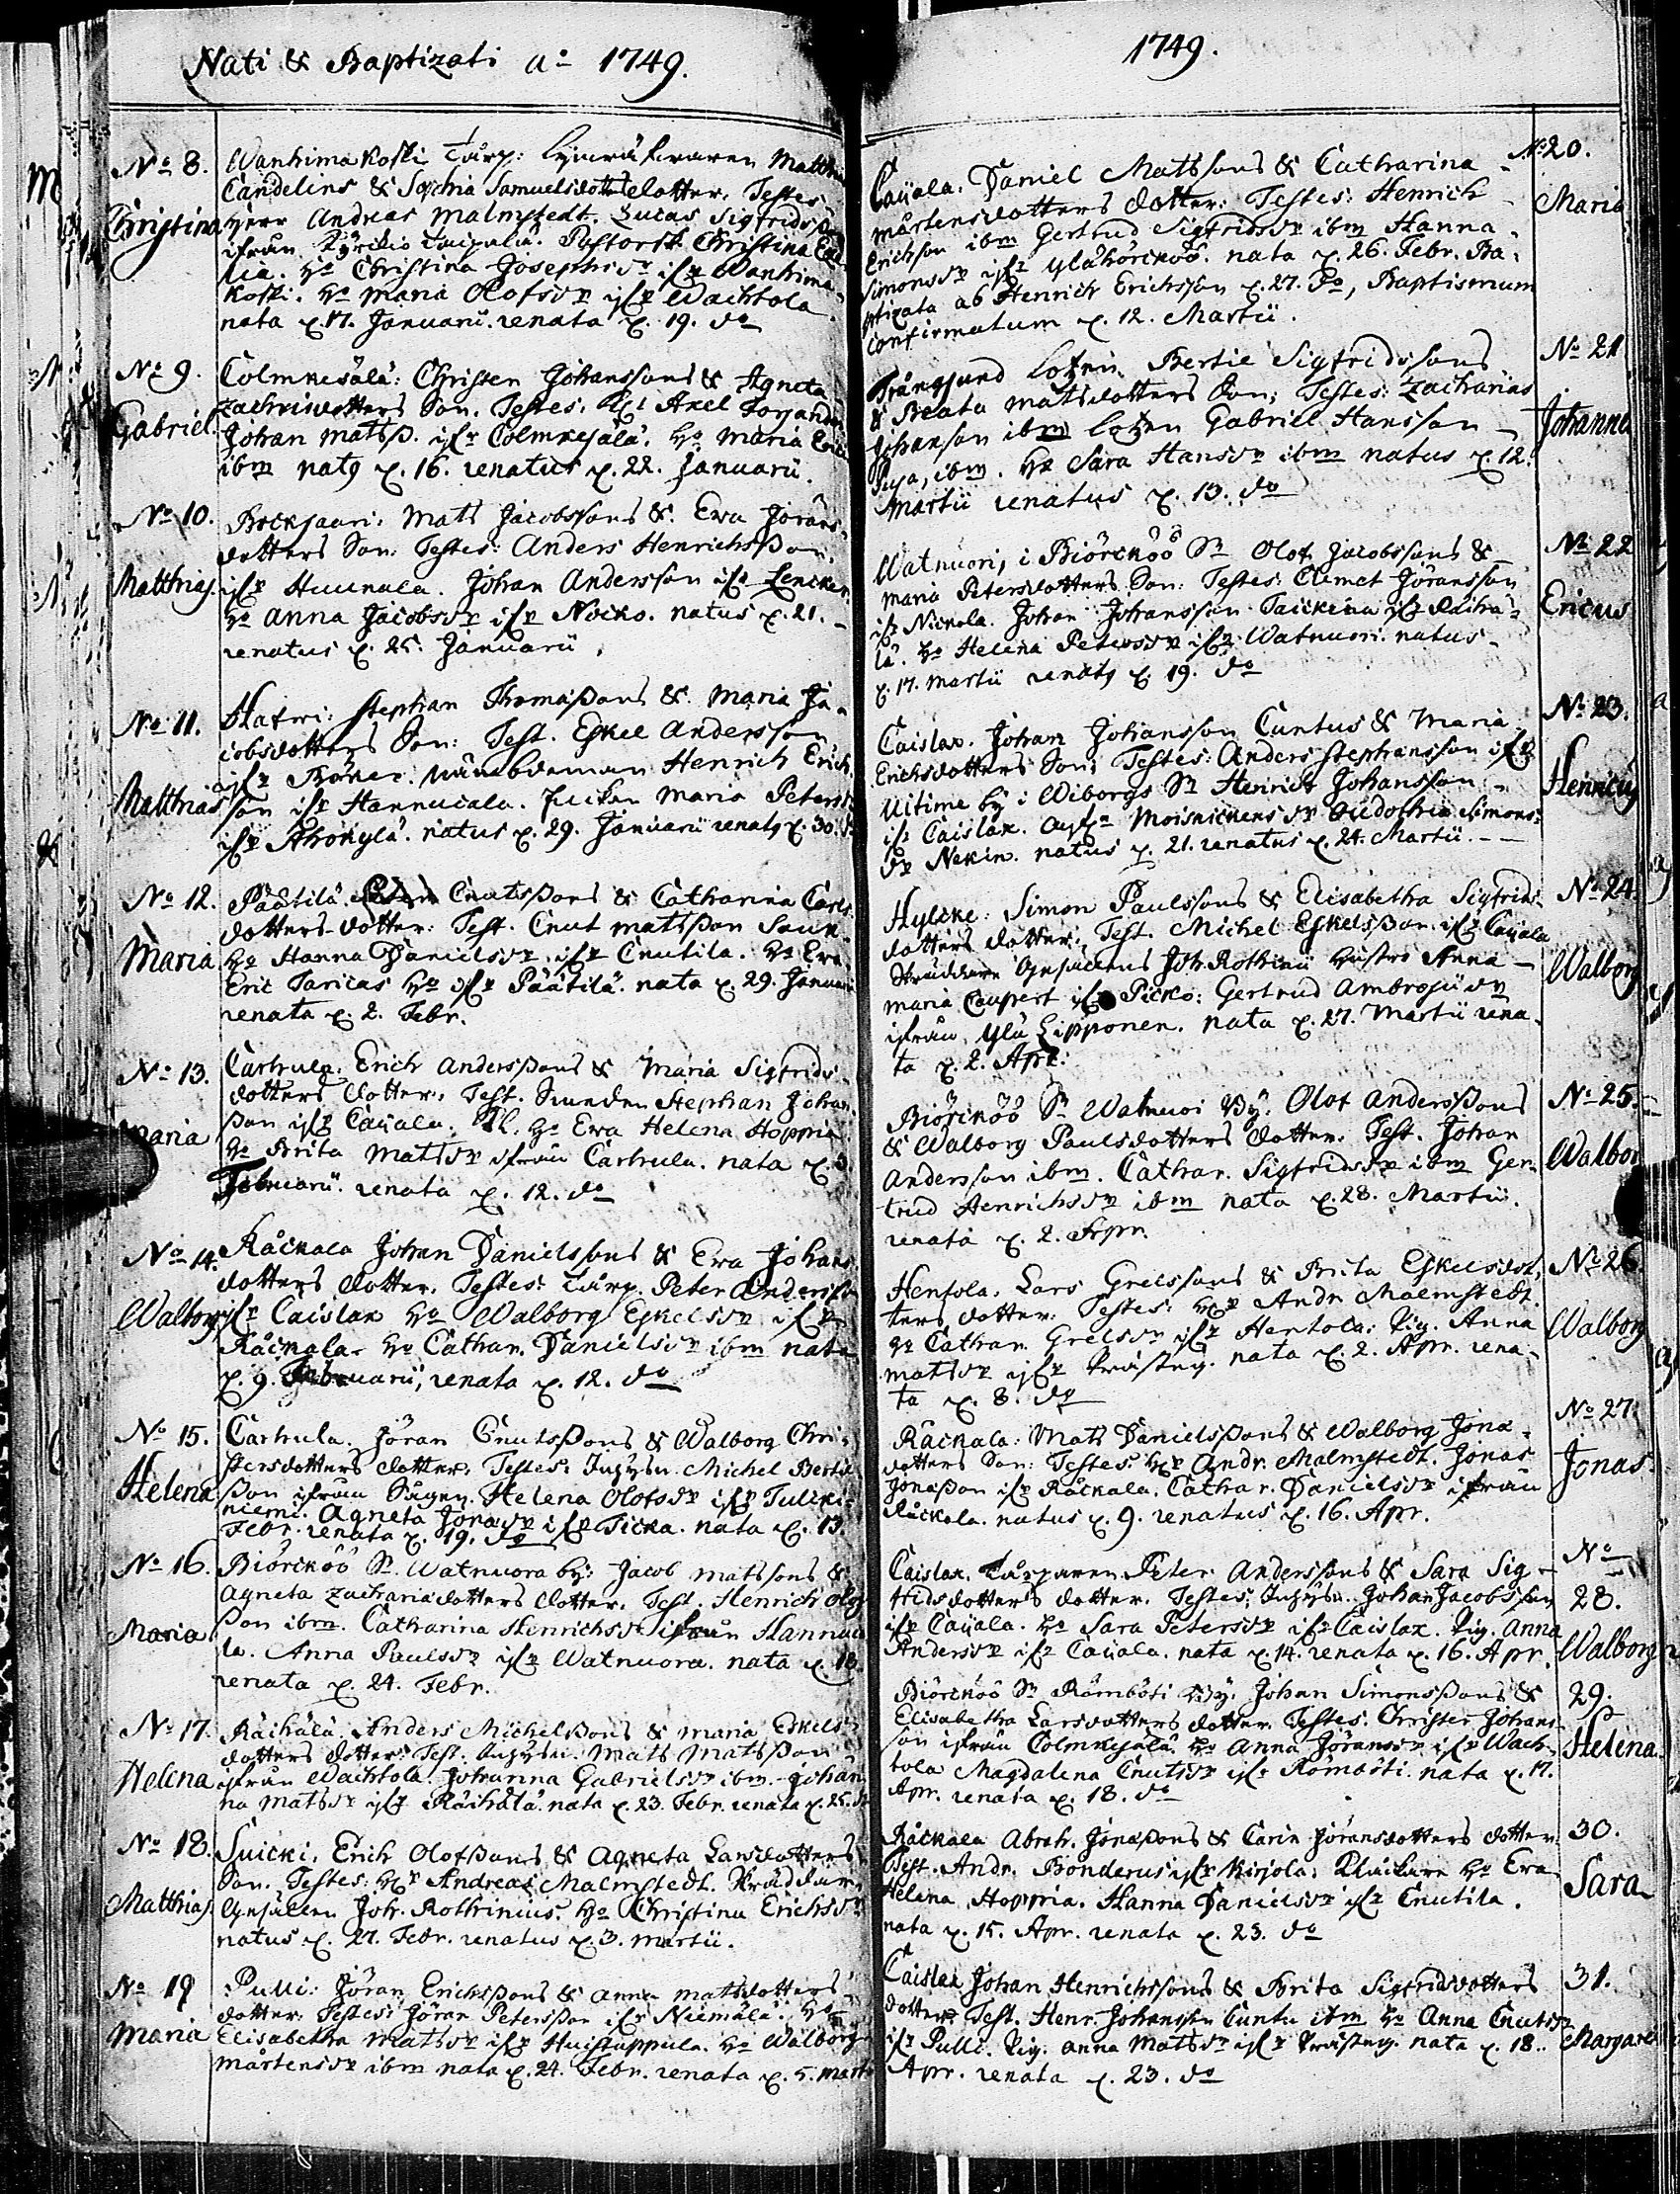 Nati & Baptizati a:o 1749.
No 8.
Christina
Wanhimakoski Tårp: Matthiæ
Candelins & Sophia Samuelsdotters dotter. Testes
Herr Andreas Malmstedt. Lucas Sigfridsson
ifrån Taipala. Pastorsk. Christina
Ho Christina Josephsdr ifr Wanhima-
koski. Ho Maria Olofsdr ifr Wachtola.
nata d. 17. Januarii. renata d. 19. do
No 9.
Gabriel.
Colmkesälä: Christer Johanssons & Agneta
Zachrisdotters Son. Testes. Axel
Johan Matsß. ifr Colmkesälä. Ho Maria Erics
ibm nat9 d. 16. renatus d. 22. Januarii.
No 10.
Matthias.
Mats Jacobssons & Ewa Jörans-
dotters Son: Testes: Anders Henrichsßon
ifr Huunala. Johan Andersson ifr
Ho Anna Jacobsdr ifr Nocko. natus d. 21.
renatus d. 25. Januarii.
No 11.
Matthias
Hatwi: Stephan Thomaßons & Maria Ja-
cobsdotters Son: Test. Eskel Andersson
ifr Nämbdeman Henrich Erich-
son ifr Hannucala. Maria Petersdr
ifr natus d. 29. Januarii renat9 d. 30. do
No 12.
Maria
Päätilä. Cnutsßons & Catharina Carls-
dotters dotter: Test. Cnut Matsßon
Ho Hanna Danielsdr. ifr Cnutila. Ho Eva
Eric Taricas Ho ifr Päätilä. nata d. 29. Januarii
renata d. 2. Febr.
No 13.
Maria
Carhula. Erich Andersßons & Maria Sigfrids-
dotters dotter. Test. Smeden Stephan Johans-
ßon ifr Caijala. Kl. Ho Ewa Helena Hoppria
Ho Brita Matsdr ifrån Carhula. nata d. 3.
Februarii. renata d. 12. do
No 14.
Walborg
Räickala Johan Danielssons & Ewa Johans-
dotters dotter. Testes: Tårp. Peter Anderson
ifr Caislax Ho Walborg Eskelsdr ifr
Räickala. Ho Cathar. Danielsdr ibm nata
d. 9. Februarii, renata d. 12. do
No 15.
Helena
Carhula. Jöran Cnutsßons & Walborg Chri-
stersdotters dotter. Testes: Inhysn. Michel Bertils-
ßon ifrån Sågen. Helena Olofsdr ifr Tulcki-
niemi. Agneta Jonasdr ifr Ticka. nata d. 13.
Febr. renata d. 19. do
No 16.
Maria
Biörcköö Sn Watnuora by: Jacob Matssons &
Agneta Zachariædotters dotter. Test. Henrich Olofs-
ßon ibm. Catharina Henrichsdr ifrån Hannuca-
la. Anna Paulsdr ifr Watnuora. nata d. 18.
renata d. 24. Febr.
No 17.
Helena
Räihälä. Anders Michelßons & Maria Eskels-
dotters dotter: Test. Inhysn. Mats Matsßon
ifrån Wachtola. Johanna Gabrielsdr ibm. Johan-
na Matsdr ifr Räihälä. nata d. 23. Febr. renata d. 25. do
No 18.
Matthias
Suicki. Erich Olofßons & Agneta Larsdotters
Son. Testes: Hr Andreas Malmstedt. Skräddare
Gesällen Joh. Rothrinius. Ho Christina Erichsdr.
natus d. 27. Febr. renatus d. 3. Martii.
No 19
Maria
Pulli: Jöran Erichsßons & Anna Matsdotters
dotter. Testes: Jöran Petersßon ifr Niemälä. Ho
Elisabetha Matsdr ifr Huistappula. Ho Walborg
Mårtensdr ibm nata d. 24. Febr. renata d. 5. Martii
1749.
No 20.
Maria
Caijala. Daniel Matssons & Catharina
Mårtensdotters dotter: Testes: Henrich
Erichson ibm Gertrud Sigfridsdr ibm Hanna
Simonsdr ifr Yläkörckö. nata d. 26. Febr. Ba-
ptizata ab Henrich Erichsson d. 27. do, Baptismum
confirmatum d. 12. Martii.
No 21
Johannes
Trångsund Lotzen Bertil Sigfridssons
& Beata Matsdotters Son; Testes: Zacharias
Johanson ibm Lotzen Gabriel Hansson
ibm. Ho Sara Hansdr ibm natus d. 12.
Martii renatus d. 13. do
No 22
Ericus
Watnuori, i Biörcköö Sn Olof Jacobssons &
Maria Petersdotters Son: Testes. Clemet Jöransson
ifr Nickola. Johan Johansson ifr Räihä-
lä. Ho Helena Petersdr ifr Watnuori. natus
d. 17. Martii renat9 d. 19. do
No 23.
Henricus
Caislax. Johan Johansson Cuntus & Maria
Erichsdotters Son; Testes: Anders Stephansson ifr
Uitime by i Wiborgs Sn Henrich Johansson
ifr Caislax. Simons-
dr natus d. 21. renatus d. 24. Martii.
No 24.
Walborg
Hylcke: Simon Paulssons & Elisabetha Sigfrids-
dotters dotter, Test. Michel Eskelsßon ifr Caijala
Skräddare Gesällens Joh. Rothrinii Hustro Anna
Maria ifr Picko: Gertrud Ambrosiidr
ifrån Ylä Lipponen. nata d. 27. Martii rena-
ta d. 2. Apr:
No 25.
Walborg
Biörcköö Sn Watnuoi By: Olof Andersßons
& Walborg Paulsdotters dotter. Test. Johan
Andersson ibm. Cathar. Sigfridsdr ibm Ger-
trud Henrichsdr ibm nata d. 28. Martii.
renata d. 2. Apr.
No 26.
Walborg
Hentola. Lars Grelssons & Brita Eskelsdot-
ters dotter. Testes: Hr Andr. Malmstedt.
Ho Cathar. Grelsdr ifr Hentola: Pig. Anna
Matsdr ifr Prästeg. nata d. 2. Apr. rena-
ta d. 8. do
No 27.
Jonas.
Räickala: Mats Danielsßons & Walborg Jona-
dotters Son: Testes Hr Andr. Malmstedt. Jonas
Jonaßon ifr Räickala. Cathar. Danielsdr ifrån
Räickala. natus d. 9. renatus d. 16. Apr.
No
28.
Walborg
Caislax. Tårparen Peter Anderssons & Sara Sig-
fridsdotters dotter. Testes; Inhysn. Johan Jacobsson
ifr Caijala. Ho Sara Petersdr ifr Caislax. Pig. Anna
Andersdr ifr Caijala. nata d. 14. renata d. 16. Apr.
29.
Helena.
Biörcköö Sn Römböti By. Johan Simonsßons &
Elisabetha Larsdotters dotter. Testes. Christer Johans-
son ifrån Colmkesälä. Ho Anna Jöransdr ifr Wach-
tola Magdalena Cnutsdr ifr Römböti. nata d. 17.
Apr. renata d. 18. do
30.
Sara
Räickala Abrah. Jonaßons & Carin Jöransdotters dotter
Test. Andr. Bonderus ifr Kirjola. Klockare Ho Eva
Helena Hoppria. Hanna Danielsdr ifr Cnutila.
nata d. 15. Apr. renata d. 23. do
31.
Margareta
Caislax Johan Henrichssons & Brita Sigfridsdotters
dotter. Test. Henr. Johansson Cuntu ibm Ho Anna Cnutsdr
ifr Pulli. Pig. Anna Matsdr ifr Prästeg. nata d. 18.
Apr. renata d. 23. do